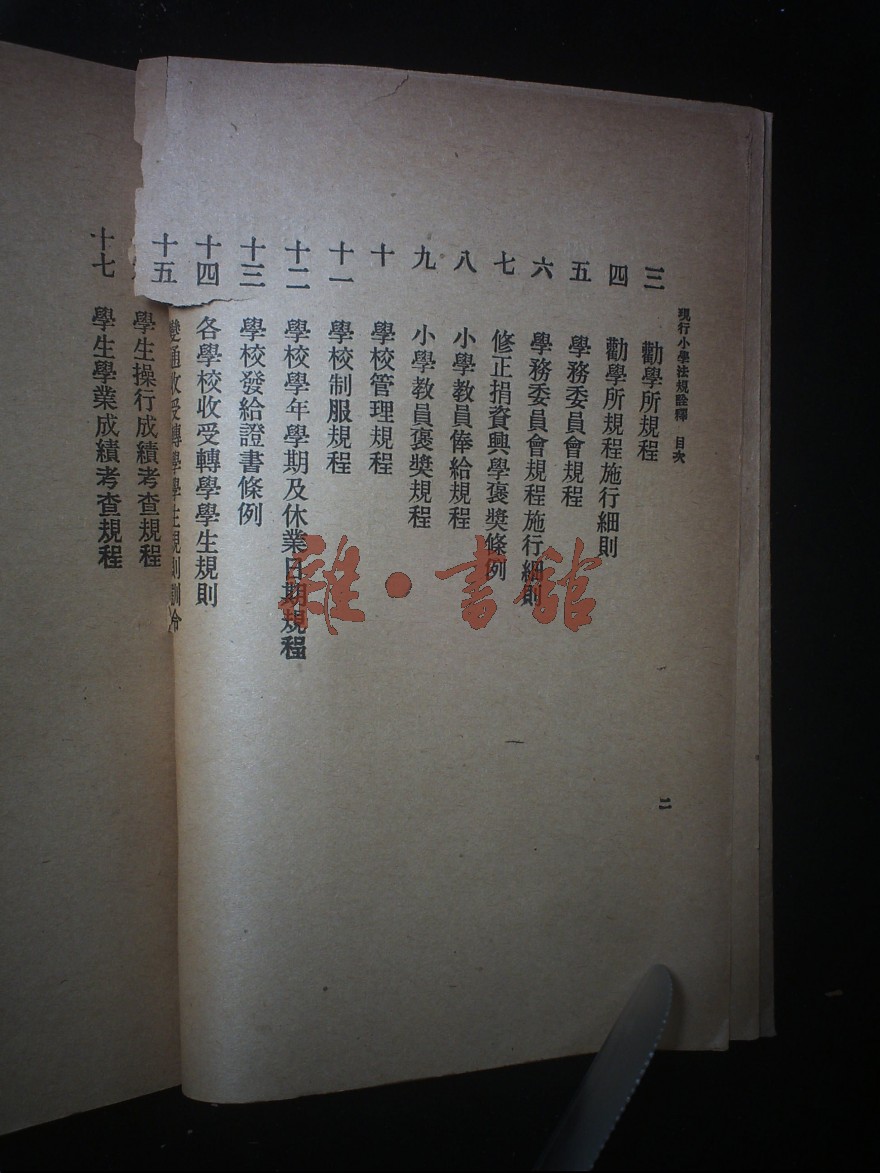 現行小學法規詮釋 目次
三 勸學所規程
四 勸學所規程施行細則
五 學務委員會規程
六 學務委員會規程施行細則
七 修正捐資興學褒獎條例
八 小學教員俸給規程
九 小學教員褒獎規程
十 學校管理規程
十一 學校制服規程
十二 學校學年學期及休業日期規程
十三 學校發給證書條例
十四 各學校收受轉學學生規則
十五 變通收受轉學學生規則訓令
學生操行成績考查規程
十七 學生學業成績考查規程
二
雜·書館